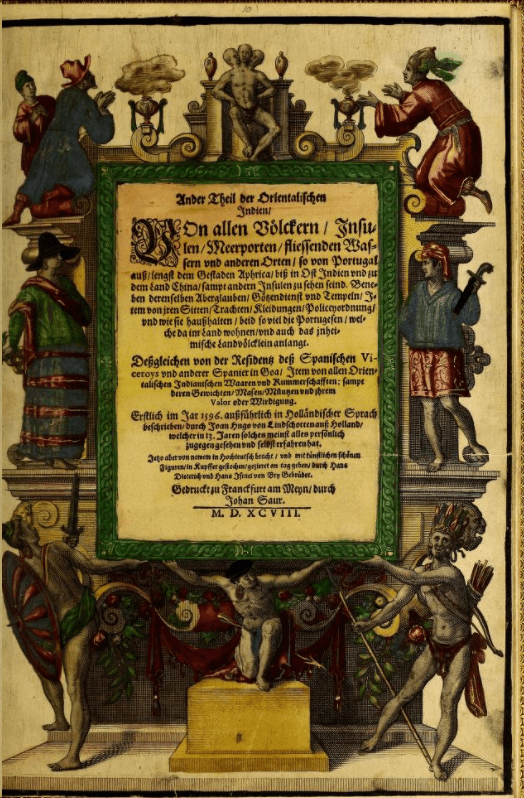 Ander Theil der Orientalischen
Indien/
VOn allen Völckern / Insu-
len/Meerporten/ fliessenden Was-
sern vnd anderen Orten / so von Portugal
auß/ lengst dem Gestaden Aphrica/ biß in Ost Indien vnd zu
dem Land China/ sampt andern Insulen zu sehen seind. Bene-
ben deren selben Aberglauben/ Götzendienst vnd Tempeln/ J-
tem von jren Sitten/Trachten/ Kleidungen/ Policeyordnung/
vnd wie sie haußhalten/ beid so viel die Portugesen/ wel-
che da im Land wohnen/ vnd auch das jnhei-
mische Landvölcklein anlangt.
Deßgleichen von der Residentz deß Spanischen Vi-
ceroys vnd anderer Spanier in Goa/ Jtem von allen Orien-
talischen Indianischen Waaren vnd Kummerschafften; sampt
deren Gewichten/ Masen/Müntzen vnd jhrem
Valor oder Wirdigung.
Erstlich im Jar 1596. außführlich in Holländischer Sprach
beschrieben/ durch Joan Hugo von Lindschotten auß Holland/
welcher in 13. Jaren solchen meinst alles persönlich
zugegen gesehen vnd selbst erfahren hat.
Jetzo aber von newem in Hochteutsch bracht / vnd mit künstlichen schönen
Figuren/ in Kupffer gestochen/ gezieret an tag geben/ durch Hans
Dieterich vnd Hans Israel von Bry Gebrüder.
Gedruckt zu Franckfurt am Meyn/ durch
Johan Saur.
M. D. XCVIII.